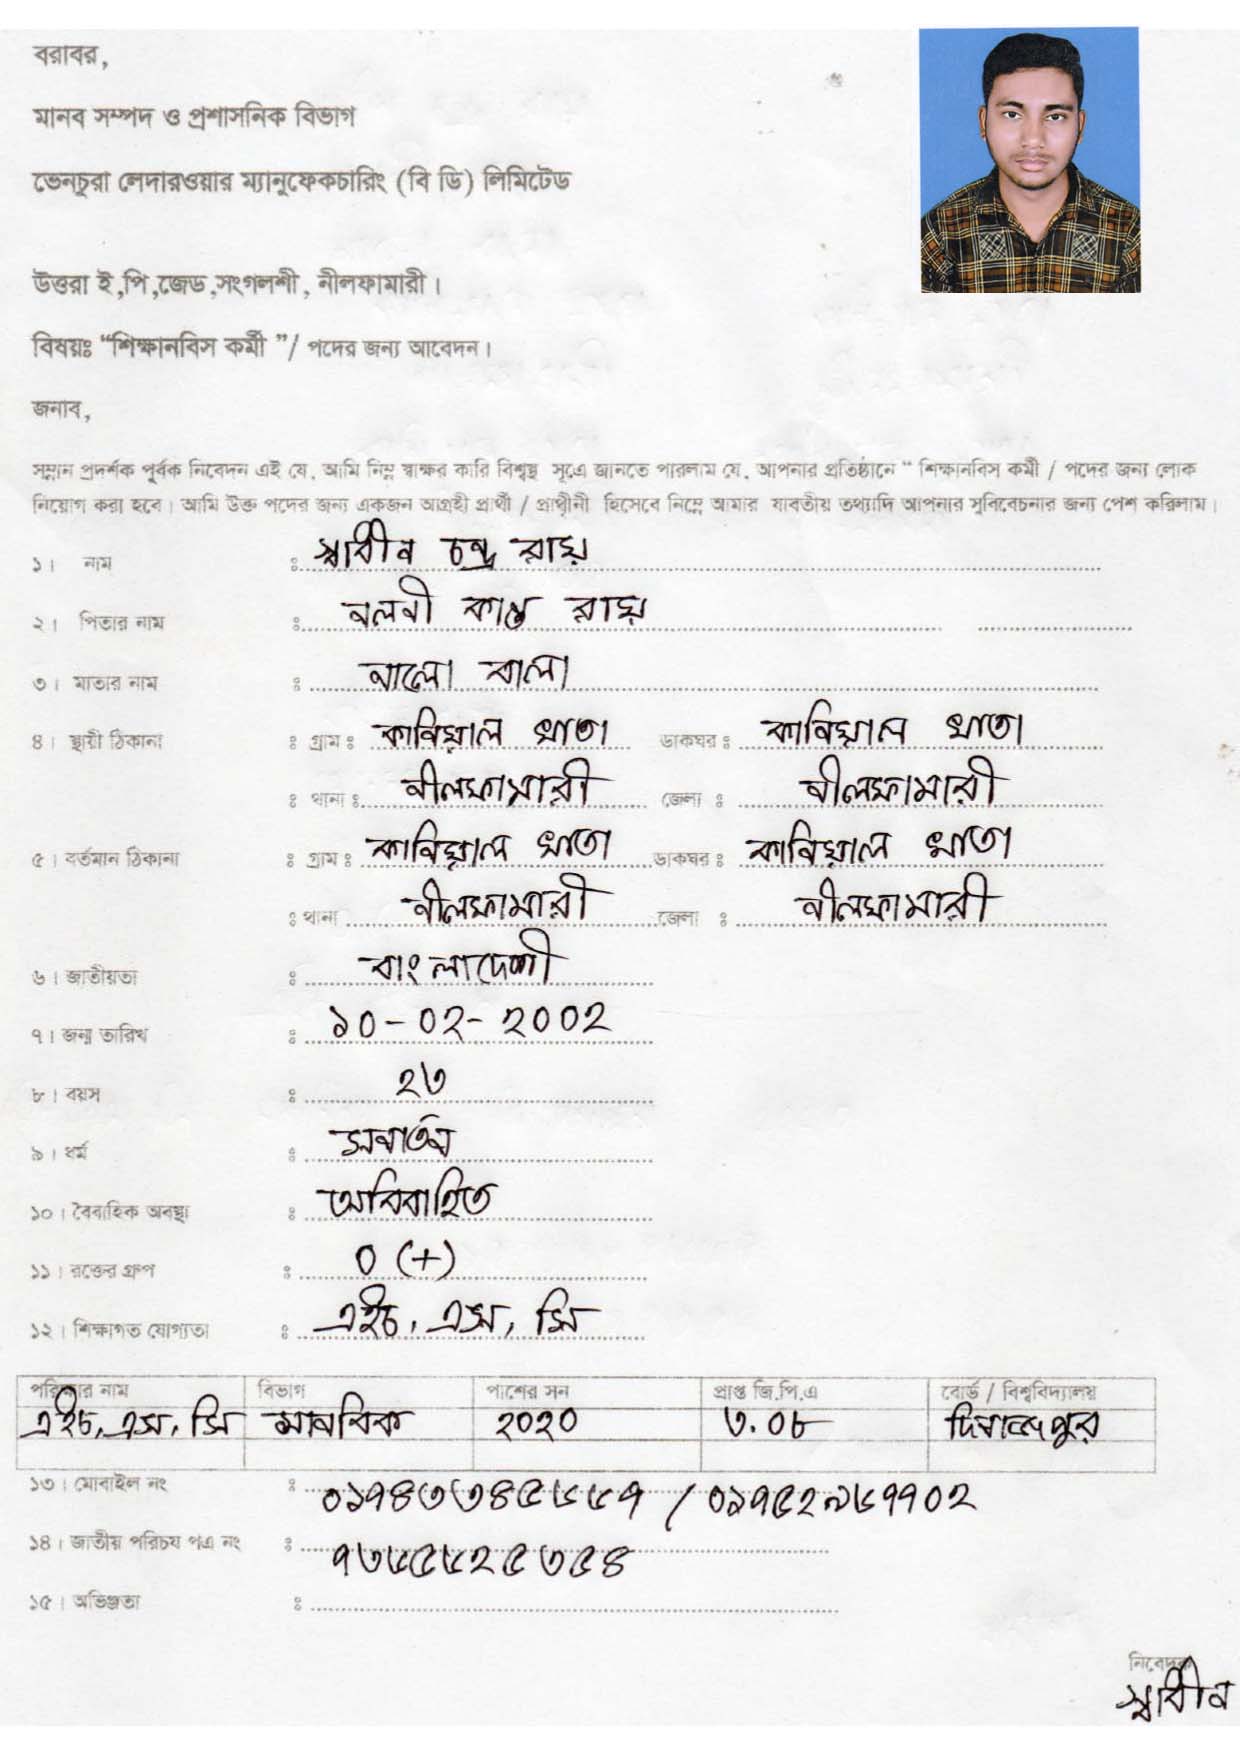 বরাবর,
মানব সম্পদ ও প্রশাসনিক বিভাগ
ভেনচুরা লেদারওয়ার ম্যানুফেকচারিং (বি ডি) লিমিটেড
উত্তরা ই,পি,জেড,সংগলশী, নীলফামারী।
বিষয়ঃ “শিক্ষানবিস কর্মী ”/ পদের জন্য আবেদন।
জনাব,
সম্মান প্রদর্শক পূর্বক নিবেদন এই যে, আমি নিম্ন স্বাক্ষর কারি বিশ্বস্থ সূত্রে জানতে পারলাম যে, আপনার প্রতিষ্ঠানে “ শিক্ষানবিস কর্মী / পদের জন্য লোক
নিয়োগ করা হবে। আমি উক্ত পদের জন্য একজন আগ্রহী প্রার্থী / প্রার্থীনী হিসেবে নিম্নে আমার যাবতীয় তথ্যাদি আপনার সুবিবেচনার জন্য পেশ করিলাম।
১। নাম ঃ স্বাধীন চন্দ্র রায়
২। পিতার নাম ঃ নলনী কান্ত রায়
৩। মাতার নাম ঃ নালো বালা
৪। স্থায়ী ঠিকানা ঃ গ্রাম ঃ কানিয়াল খাতা ডাকঘর ঃ কানিয়াল খাতা
ঃ থানা ঃ নীলফামারী জেলা ঃ নীলফামারী
৫। বর্তমান ঠিকানা ঃ গ্রাম ঃ কানিয়াল খাতা ডাকঘর ঃ কানিয়াল খাতা
ঃ থানা নীলফামারী জেলা ঃ নীলফামারী
৬। জাতীয়তা ঃ বাংলাদেশী
৭। জন্ম তারিখ ঃ ১০-০২-২০০২
৮। বয়স ঃ ২৩
৯। ধর্ম ঃ সনাতন
১০। বৈবাহিক অবস্থা ঃ অবিবাহিত
১১। রক্তের গ্রুপ ঃ O (+)
১২। শিক্ষাগত যোগ্যতা ঃ এইচ, এস, সি
পরিক্ষার নাম বিভাগ পাশের সন প্রাপ্ত জি.পি.এ বোর্ড / বিশ্ববিদ্যালয়
এইচ, এস, সি মানবিক ২০২০ ৩.০৮ দিনাজপুর
১৩। মোবাইল নং ঃ ০১৭৪৩৩৪৫৬৬৫৭ / ০১৭৫২৯৬৭৭০২
১৪। জাতীয় পরিচয পএ নং ঃ ৭৩৬৫৬২৫৩৫৪
১৫। অভিজ্ঞতা ঃ
নিবেদক
স্বাধীন